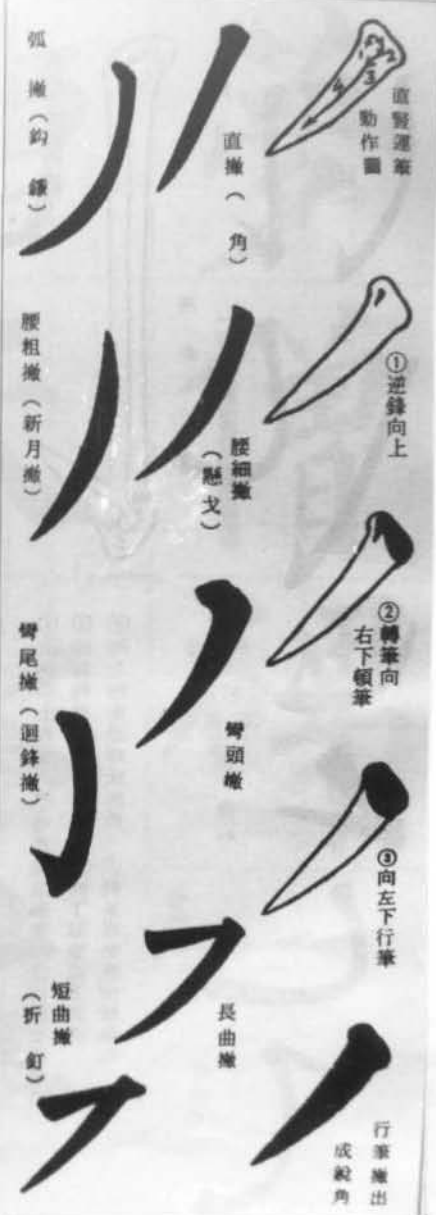 直豎運筆
動作圖
①逆鋒向上
②轉筆向
右下頓筆
③向左下行筆
行筆撇出
成銳角
直撇（　角）
腰細撇
（懸戈）
彎頭撇
長曲撇
弧撇（鈎鐮）
腰粗撇（新月撇）
彎尾撇（迴鋒撇）
短曲撇
（折釘）